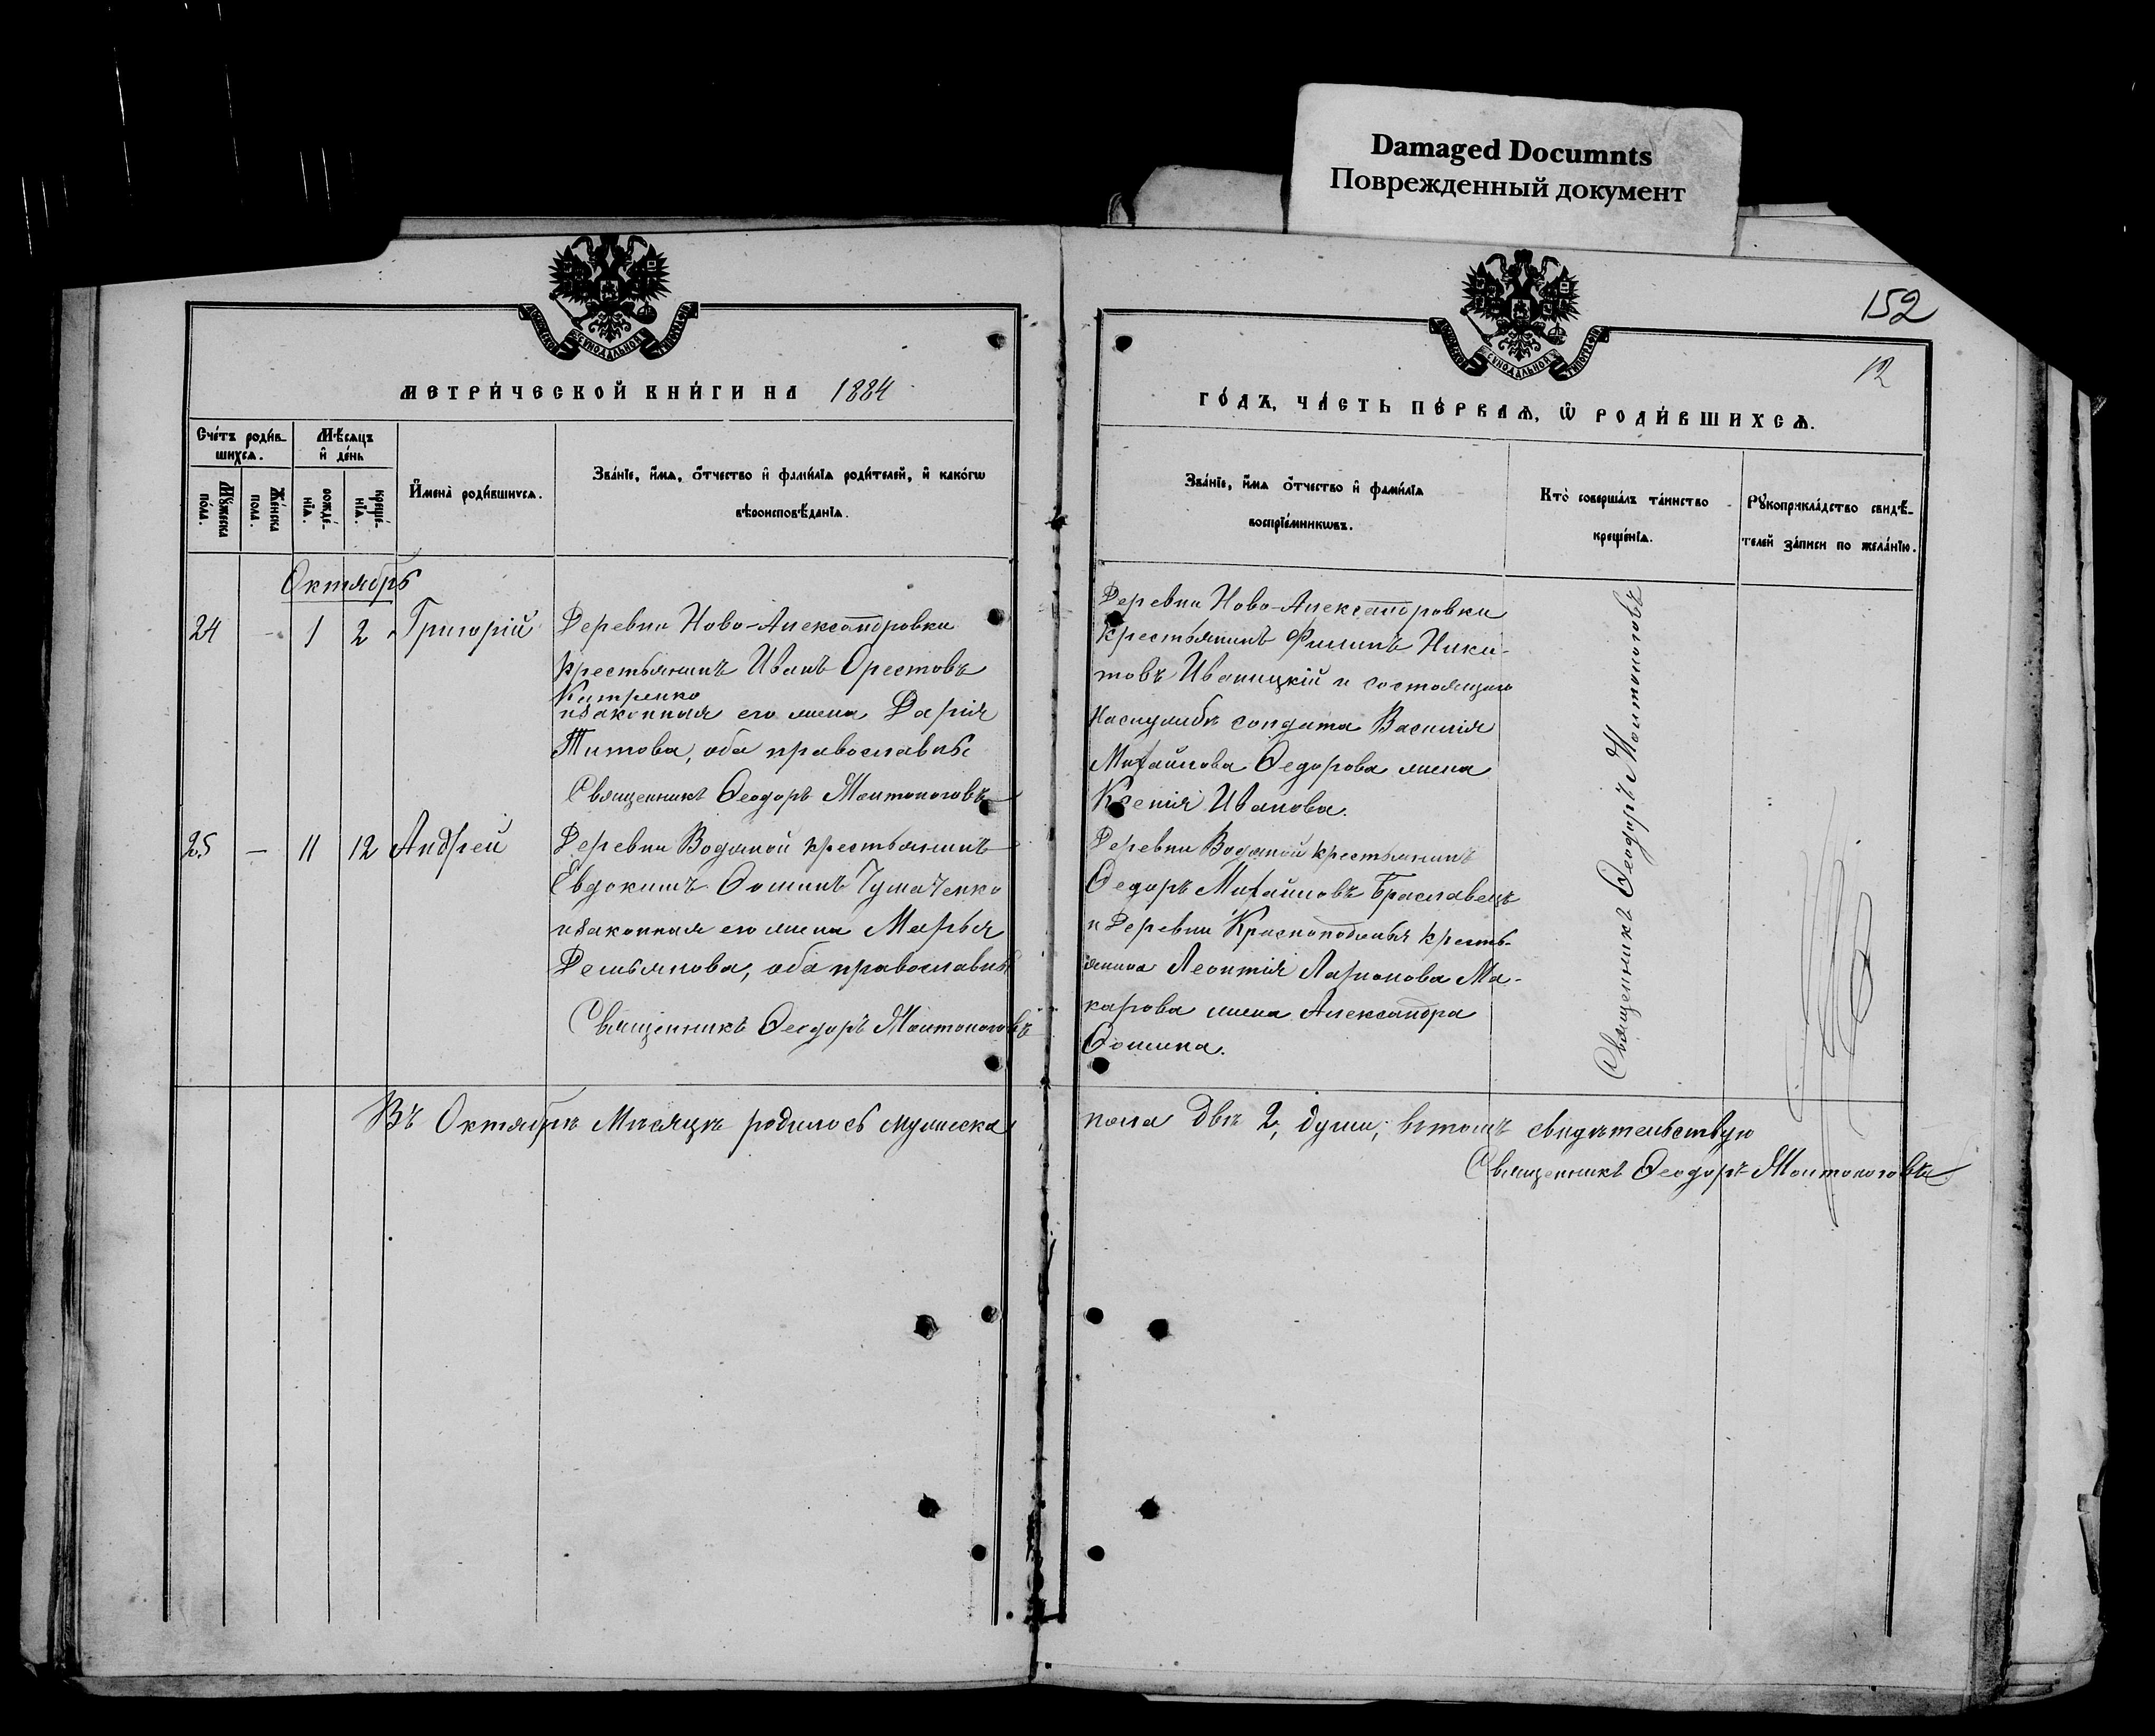 Damaged Documnts
Поврежденный документ
152
12
МЕТРИ́ЧЕСКОЙ КНИ́ГИ НА 1884
ГО́ДЪ, ЧА́СТЬ ПЕ́РВАѦ, Ѽ РОДИ́ВШИХСѦ.
Счéтъ роди́в-
шихсѧ.
Мꙋ́жеска
пóла.
Жéнска
пола.
Мѣ́сѧцъ
и҆ дéнь
рождé-
нїѧ.
крещé-
нїѧ.
И҆мена̀ роди́вшихсѧ.
Звáнїе, и҆́мѧ, ѻ҆́тчество и҆ фами́лїѧ роди́телей, и҆ какóгѡ
вѣроисповѣ́данїѧ.
Звáнїе, и҆́мѧ ѻ҆́тчество и҆ фами́лїѧ
воспрїéмникѡвъ.
Ктò совершáлъ тáинство
крещéнїѧ.
Рꙋкоприклáдство свидѣ́-
телей зáписи по желáнїю.
Октябрь
24 - 1 2 Григорій
Деревни Ново-Александровки
крестьянинъ Иванъ Орестовъ
изаконная его жена Дарія
Титова, оба православные
Священникъ Ѳеодоръ
Деревни Ново-Александровки
крестьянинъ Филипъ Ники-
товъ Иваницкій и состоящаго
наслужбѣ солдата Василія
Михайлова Ѳедорова жена
Ксенія Иванова.
25 — 11 12 Андрей
Деревни Водяной крестьянинъ
Евдокимъ Ѳоминъ Чумаченко
изаконная его жена Марья
Демьянова, оба православные
Священникъ Ѳеодоръ
Деревни Водяной крестьянинъ
Ѳедоръ Михайловъ Браславецъ
и Деревни Краснополья кресть-
янина Леонтія Ларионова Ма-
карова жена Александра
Ѳомина.
Священникъ Ѳеодоръ
Въ Октябрѣ Мѣсяцѣ родилось мужеска пола двѣ 2, души, вътомъ свидѣтельствую
Священникъ Ѳеодоръ